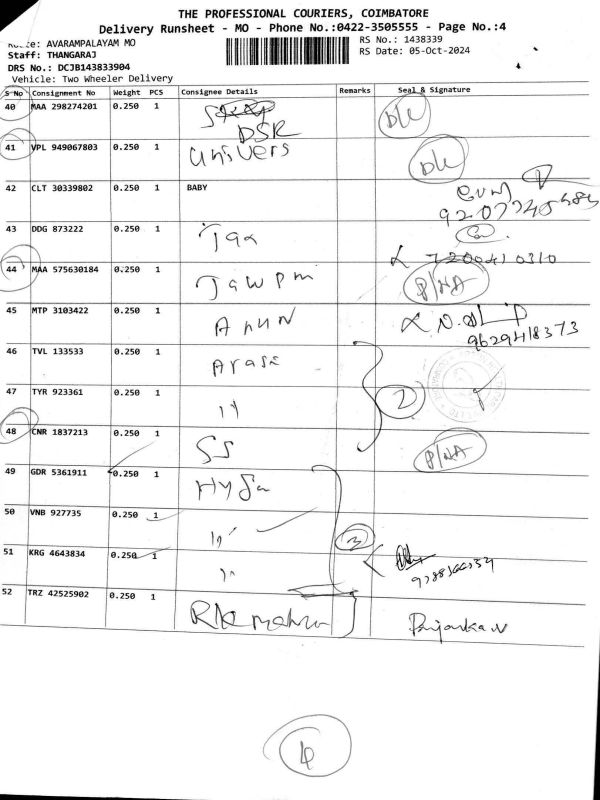 THE PROFESSIONAL COURIERS, COIMBATORE
Delivery Runsheet - MO - Phone No.:0422-3505555 - Page No.:4
Route: AVARAMPALAYAM MO
RS No.: 1438339
Staff: THANGARAJ
RS Date: 05-Oct-2024
DRS No.: DCJB143833904
Vehicle: Two Wheeler Delivery
S No Consignment No Weight PCS Consignee Details Remarks Seal & Signature
40 MAA 298274201 0.250 1 DSR D/L
41 VPL 949067803 0.250 1 Univers D/L
42 CLT 30339802 0.250 1 BABY
43 DDG 873222 0.250 1 Tax
7200410310
44 MAA 575630184 0.250 1 Jawpmi P/NA
45 MTP 3103422 0.250 1 Anun
9629418373
46 TVL 133533 0.250 1 Arasi
47 TYR 923361 0.250 1 11 2
48 CNR 1837213 0.250 1 SS P/NA
49 GDR 5361911 0.250 1
50 VNB 927735 0.250 1 11 3
51 KRG 4643834 0.250 1 11
52 TRZ 42525902 0.250 1 RK Priyanka.N
4